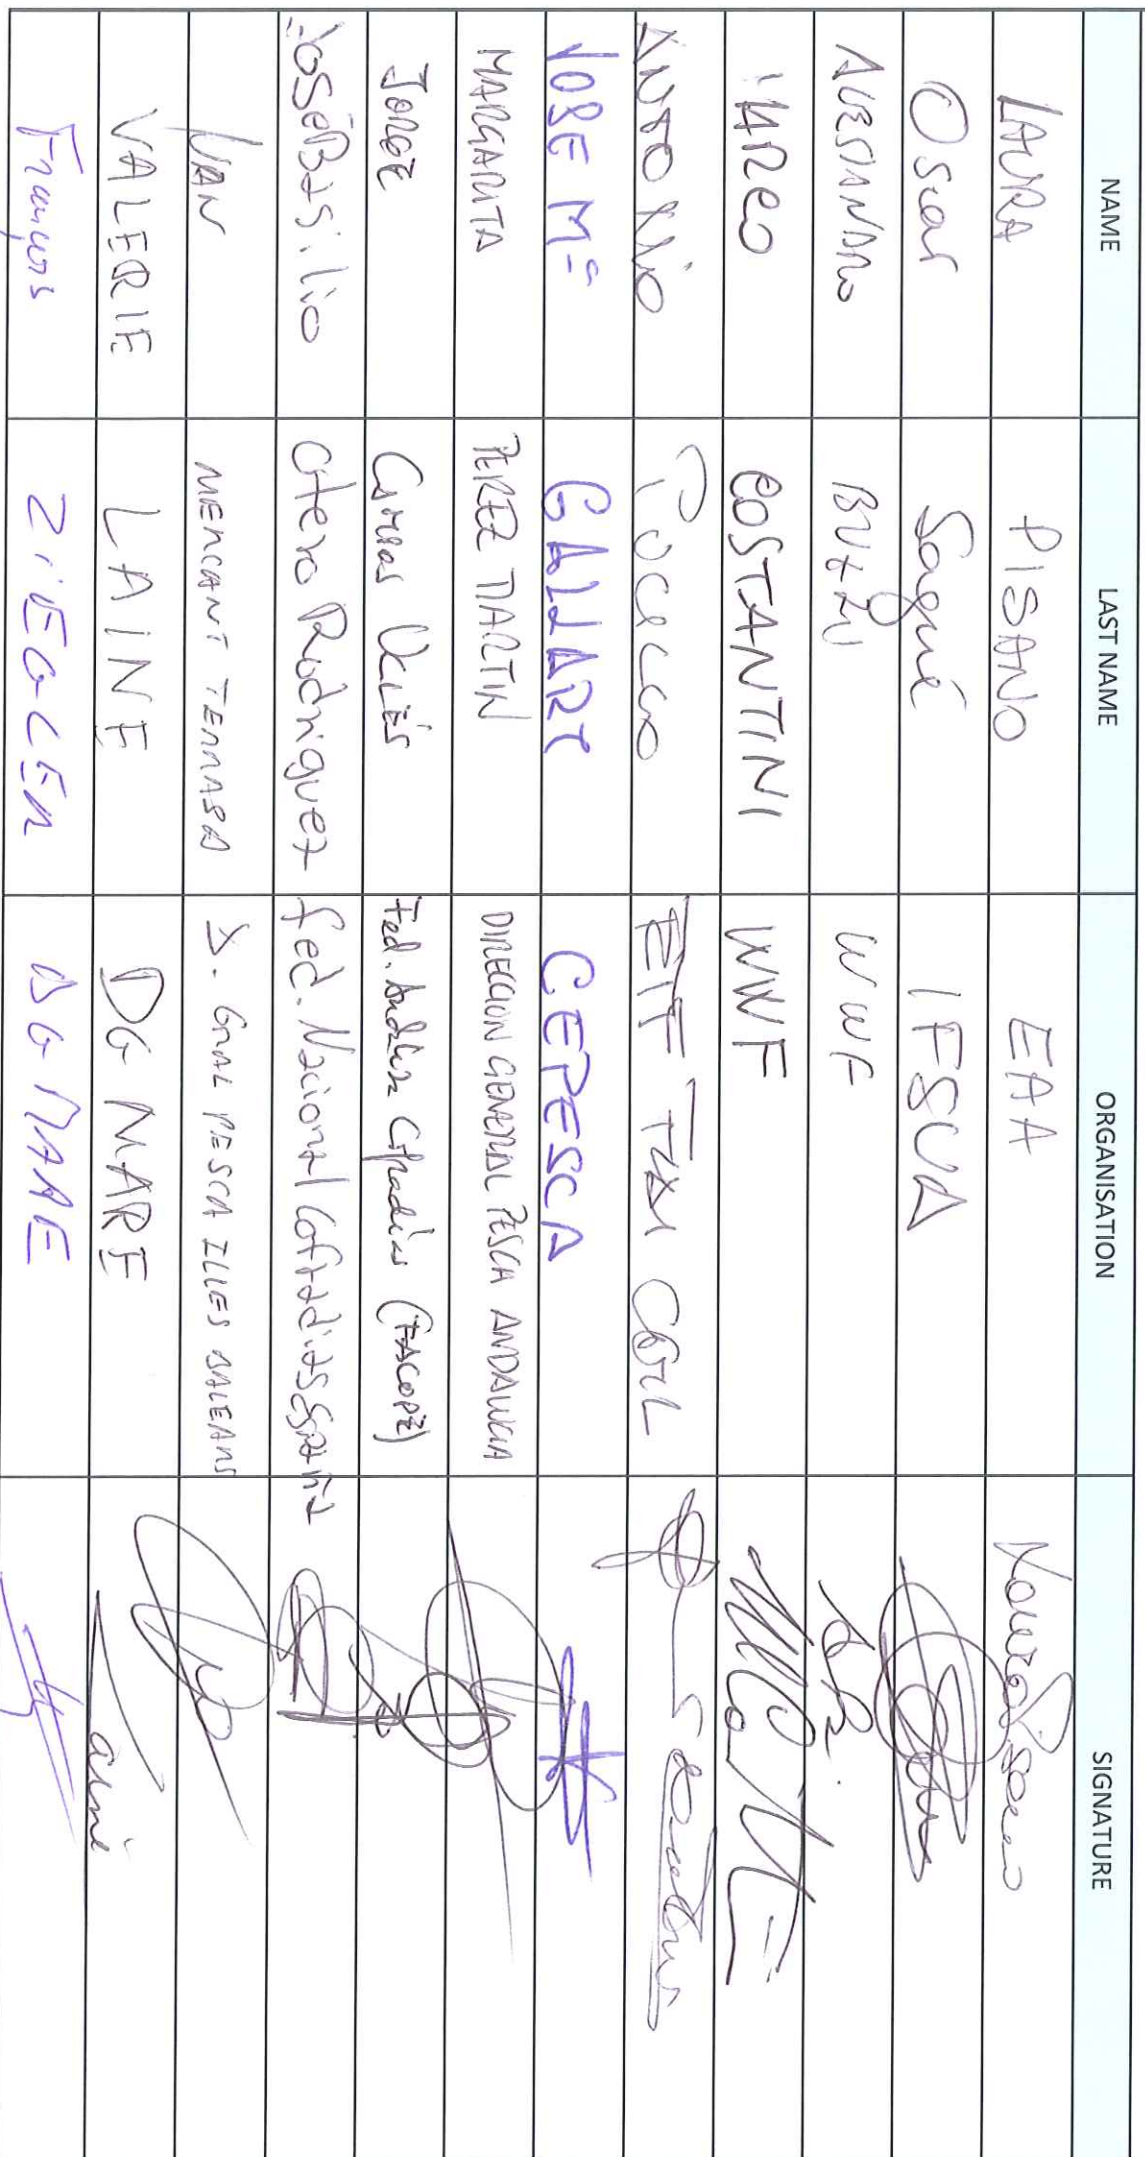 NAME LAST NAME ORGANISATION SIGNATURE
LAURA PISANO EAA
Oscar Sagué IFSUA
ALESSANDRO BUZZI WWF
MARCO COSTANTINI WWF
ANTONIO PUCILLO
JOSE Mª GALLART CEPESCA
MARGARITA PEREZ MARTIN DIRECCION GENERAL PESCA ANDALUCIA
JORGE Fed. Andaluza Cofradías (FACOPE)
José Basilio Otero Rodriguez fed. Nacional Cofradias España
JUAN MERCANT TERRASA D. GRAL PESCA ILLES BALEARS
VALERIE LAINE DG MARE
François ZIEGLER DG MARE